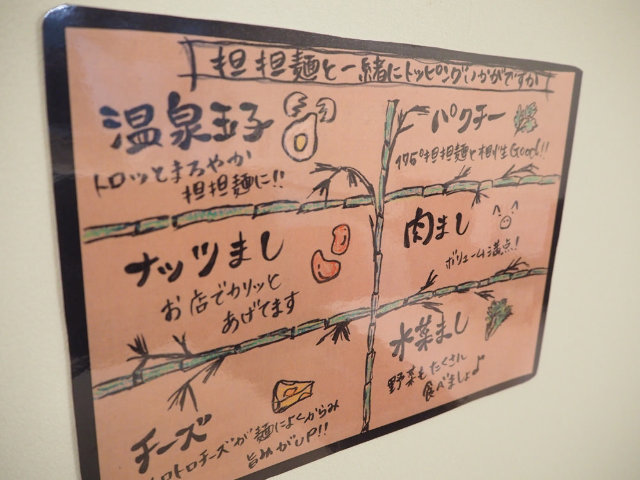 担担麺と一緒にトッピングいかがですか
温泉玉子
トロッとまろやか
担担麺に!!
パクチー
175°担担麺と相性Good!!
ナッツまし
お店でカリッと
あげてます
肉まし
ボリューム満点!
チーズ
トロトロチーズが麺によくからみ
旨みがUP!!
水菜まし
野菜もたくさん
食べましょ♪